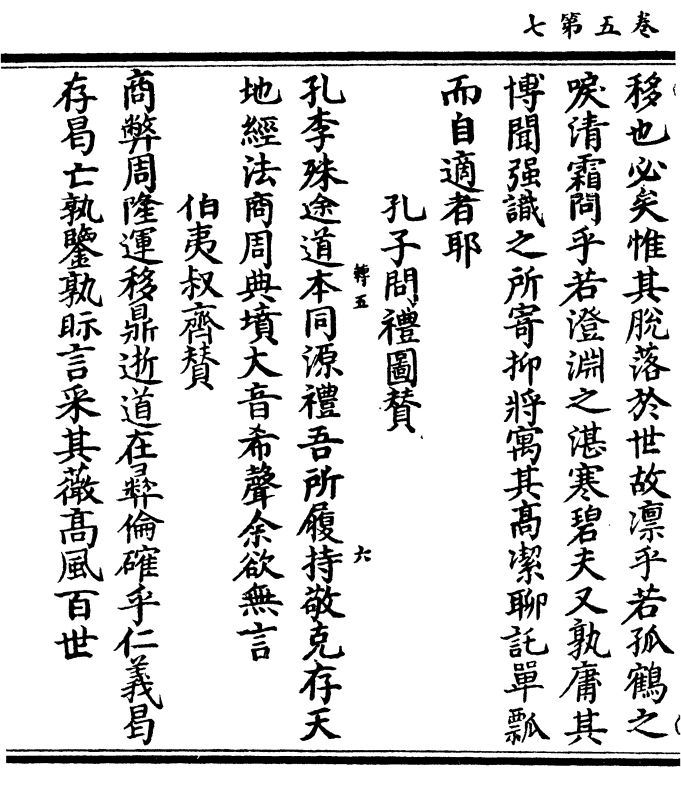 卷五第七
移也必矣惟其脫落於世故凛乎若孤鶴之
唳清霜問乎若澄淵之湛寒碧夫又孰庸其
博聞强識之所寄抑將寓其髙潔聊託單瓢
而自適者耶
孔子問禮圖賛
轉五
孔李殊途道本同源禮吾所履持敬克存天
六
地經法商周典墳大音希聲余欲無言
伯夷叔齊賛
商弊周隆運移鼎逝道在彛倫確乎仁義曷
存曷亡孰鑒孰眎言采其薇髙風百世